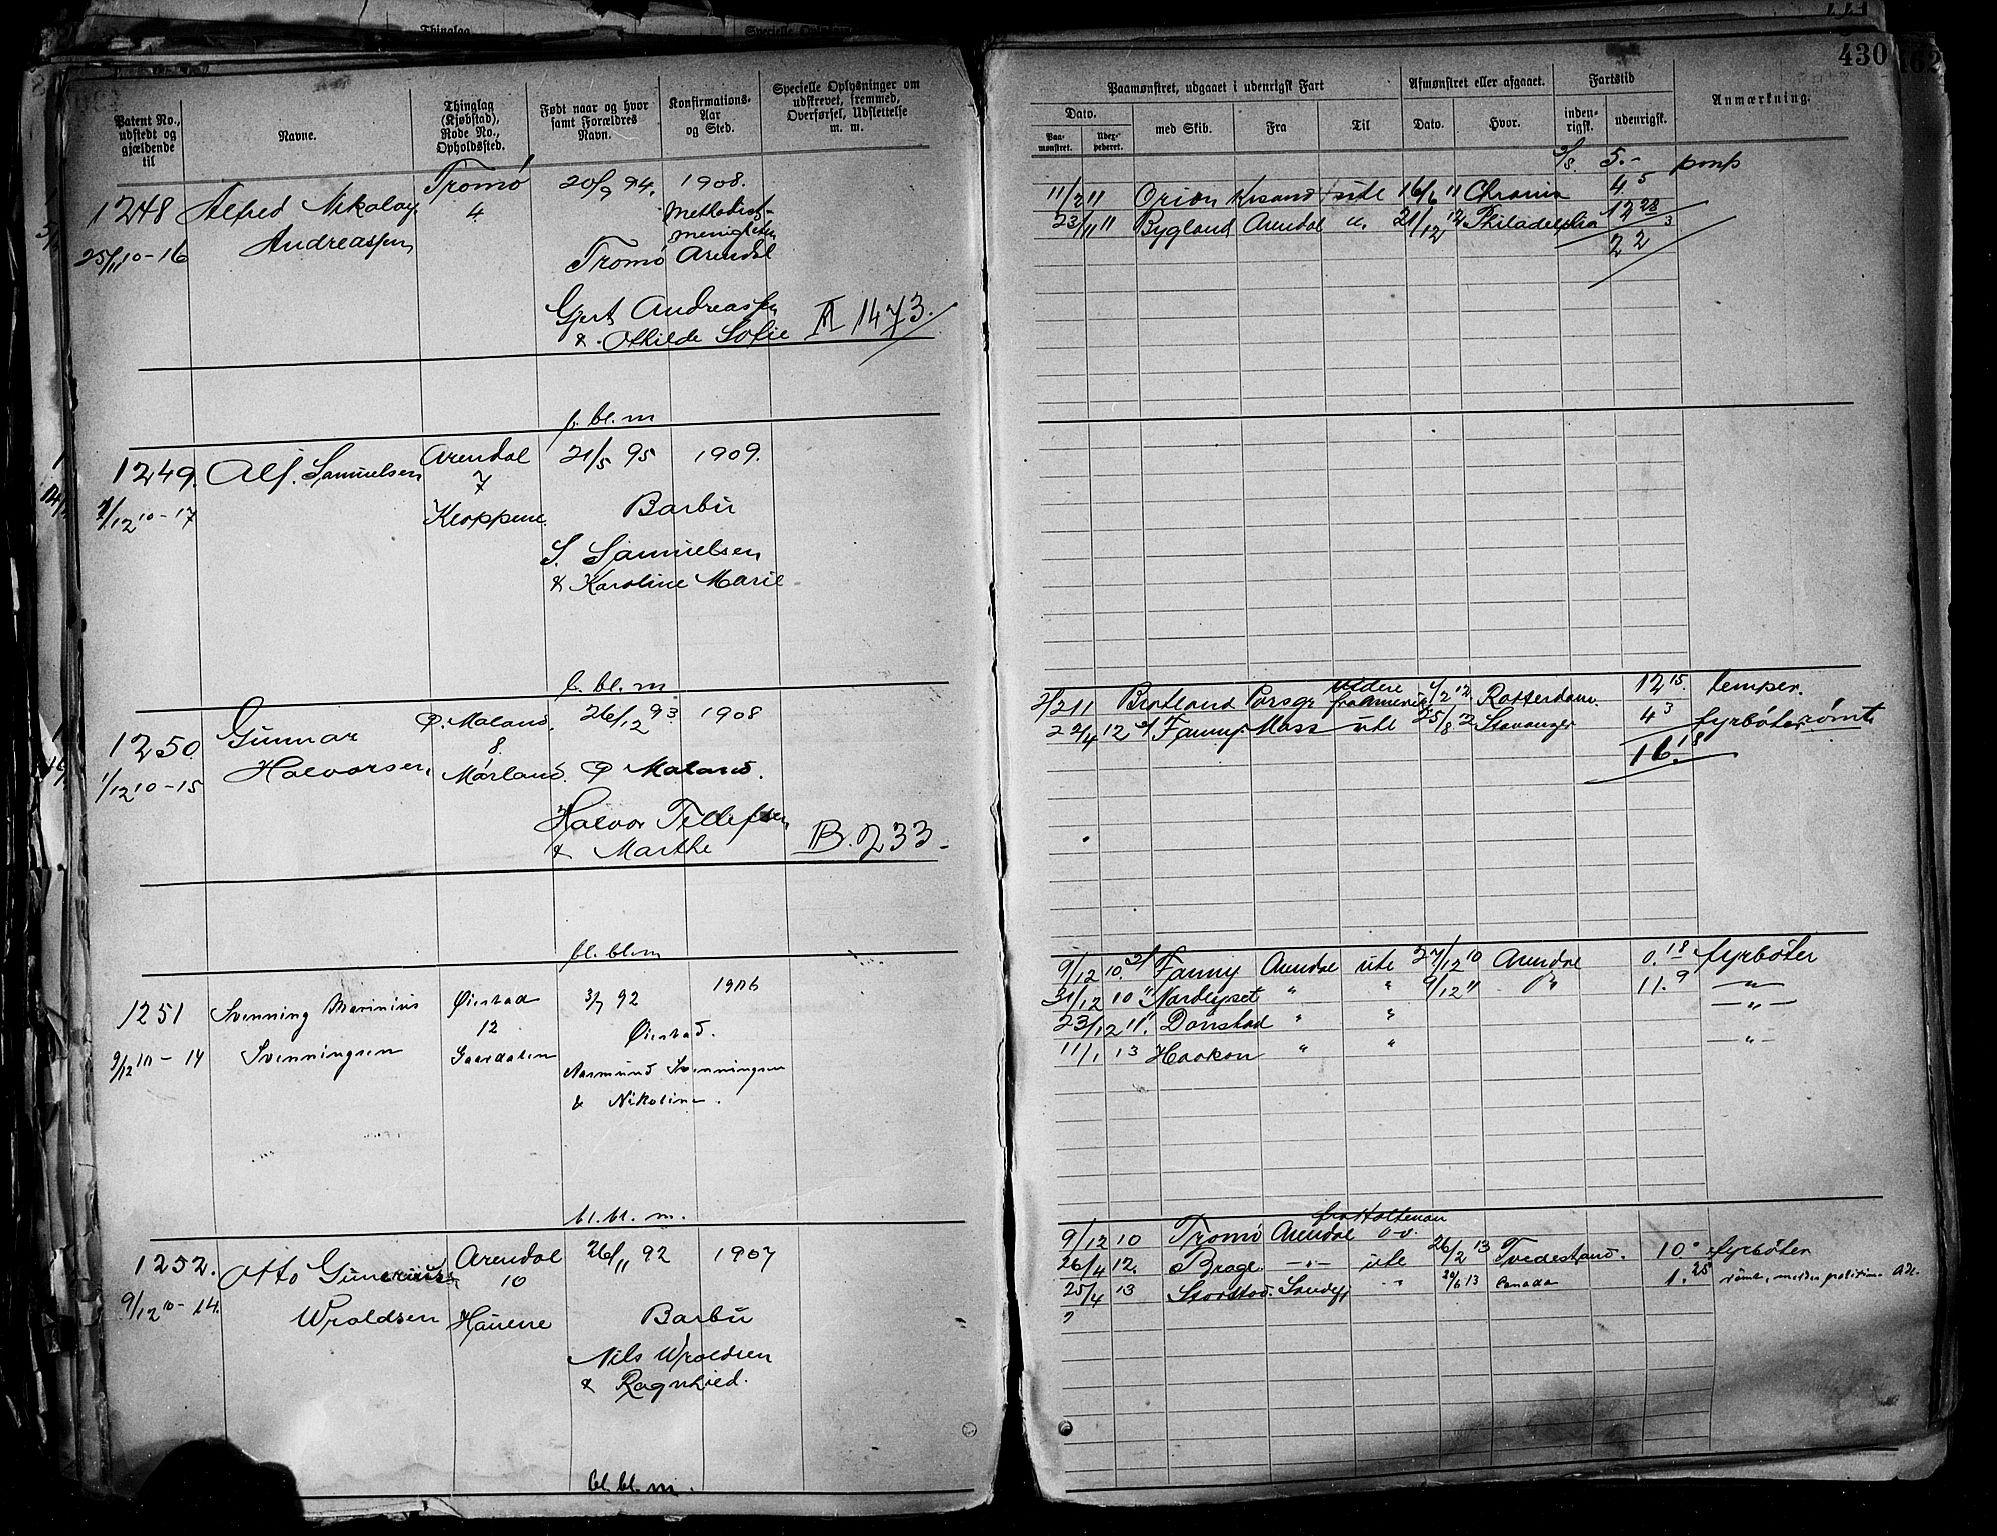 430
Patent No., udstedt og gjældende til
Navne.
Thinglag (Kjøbstad), Rode No., Opholdssted.
Født naar og hvor samt Forældres Navn.
Konfirmations-Aar og Sted.
Specielle Oplysninger om udskrevet, fremmed, Overførsel, Udslettelse m. m.
Paamønstret, udgaaet i udenrigsk Fart
Afmønstret eller afgaaet.
Fartstid
Anmærkning.
Dato.
Paa-mønstret.
Udex-pederet.
med Skib.
Fra
Til
Dato.
Hvor.
inden-rigsk.
udenrigsk.
1248 Alfred Nikolay Tromø 20/9 94. 1908.
Andreassen 4 Methodist-
menigheten
25/11 10-16 Tromø Arendal
Gjert Andreassen
& Othilde Sofie II 1473.
b. bl. m
1249. Alf. Samuelsen Arendal 21/5 95 1909.
7
/12 10-17 Kloppene Barbu
S. Samuelsen
& Karoline Marie
b. bl. m
1250 Gunnar Ø. Moland. 26/12 93 1908
Halvorsen 8.
1/12 10-15 Mørland. Ø Moland.
Halvor Tellefsen
& Marthe B. 233.
bl. bl. m
1251 Svenning Marinius Øiestad 3/7 92 1906
12 Øiestad.
9/12 10-14 Svenningsen Gaardalen
Aasmund Svenningsen
& Nikoline.
bl. bl. m.
1252. Otto Gunerius Arendal 26/11 92 1907
10
9/12 10-14. Wroldsen Hauene Barbu
Nils Wroldsen
& Ragnhild.
bl. bl. m.
5.-
11/2 11 Orion Krsand ute 16/6 11 Chrania 4.5
23/11 11 Bygland Arendal 21/12 12 Philadelphia 12 28
22 3
2/2 11 Bratland Porsgr videre fra Amerika /2 12 Rotterdam. 12 15. temper.
22/4 12 Fanny. Moss ute 25/8 12 Stavanger 4 3 fyrbøter rømt
16. 18
9/12 10. Fanny Arendal ute 27/12 10 Arendal 0. 18 fyrbøter
31/12 10 Nordlyset " " 9/12 11 11. 9 -"-
23/12 11. Dønstad " " -"-
11/1 13 Haakon " " -"-
fra Holtenau
9/12 10 Tromø Arendal
26/4 12. Brage -"- ute 26/2 13 Tvedestrand. 10 fyrbøter
25/4 13 Storstad. Sandefj 20/6 13 Canada 1. 25